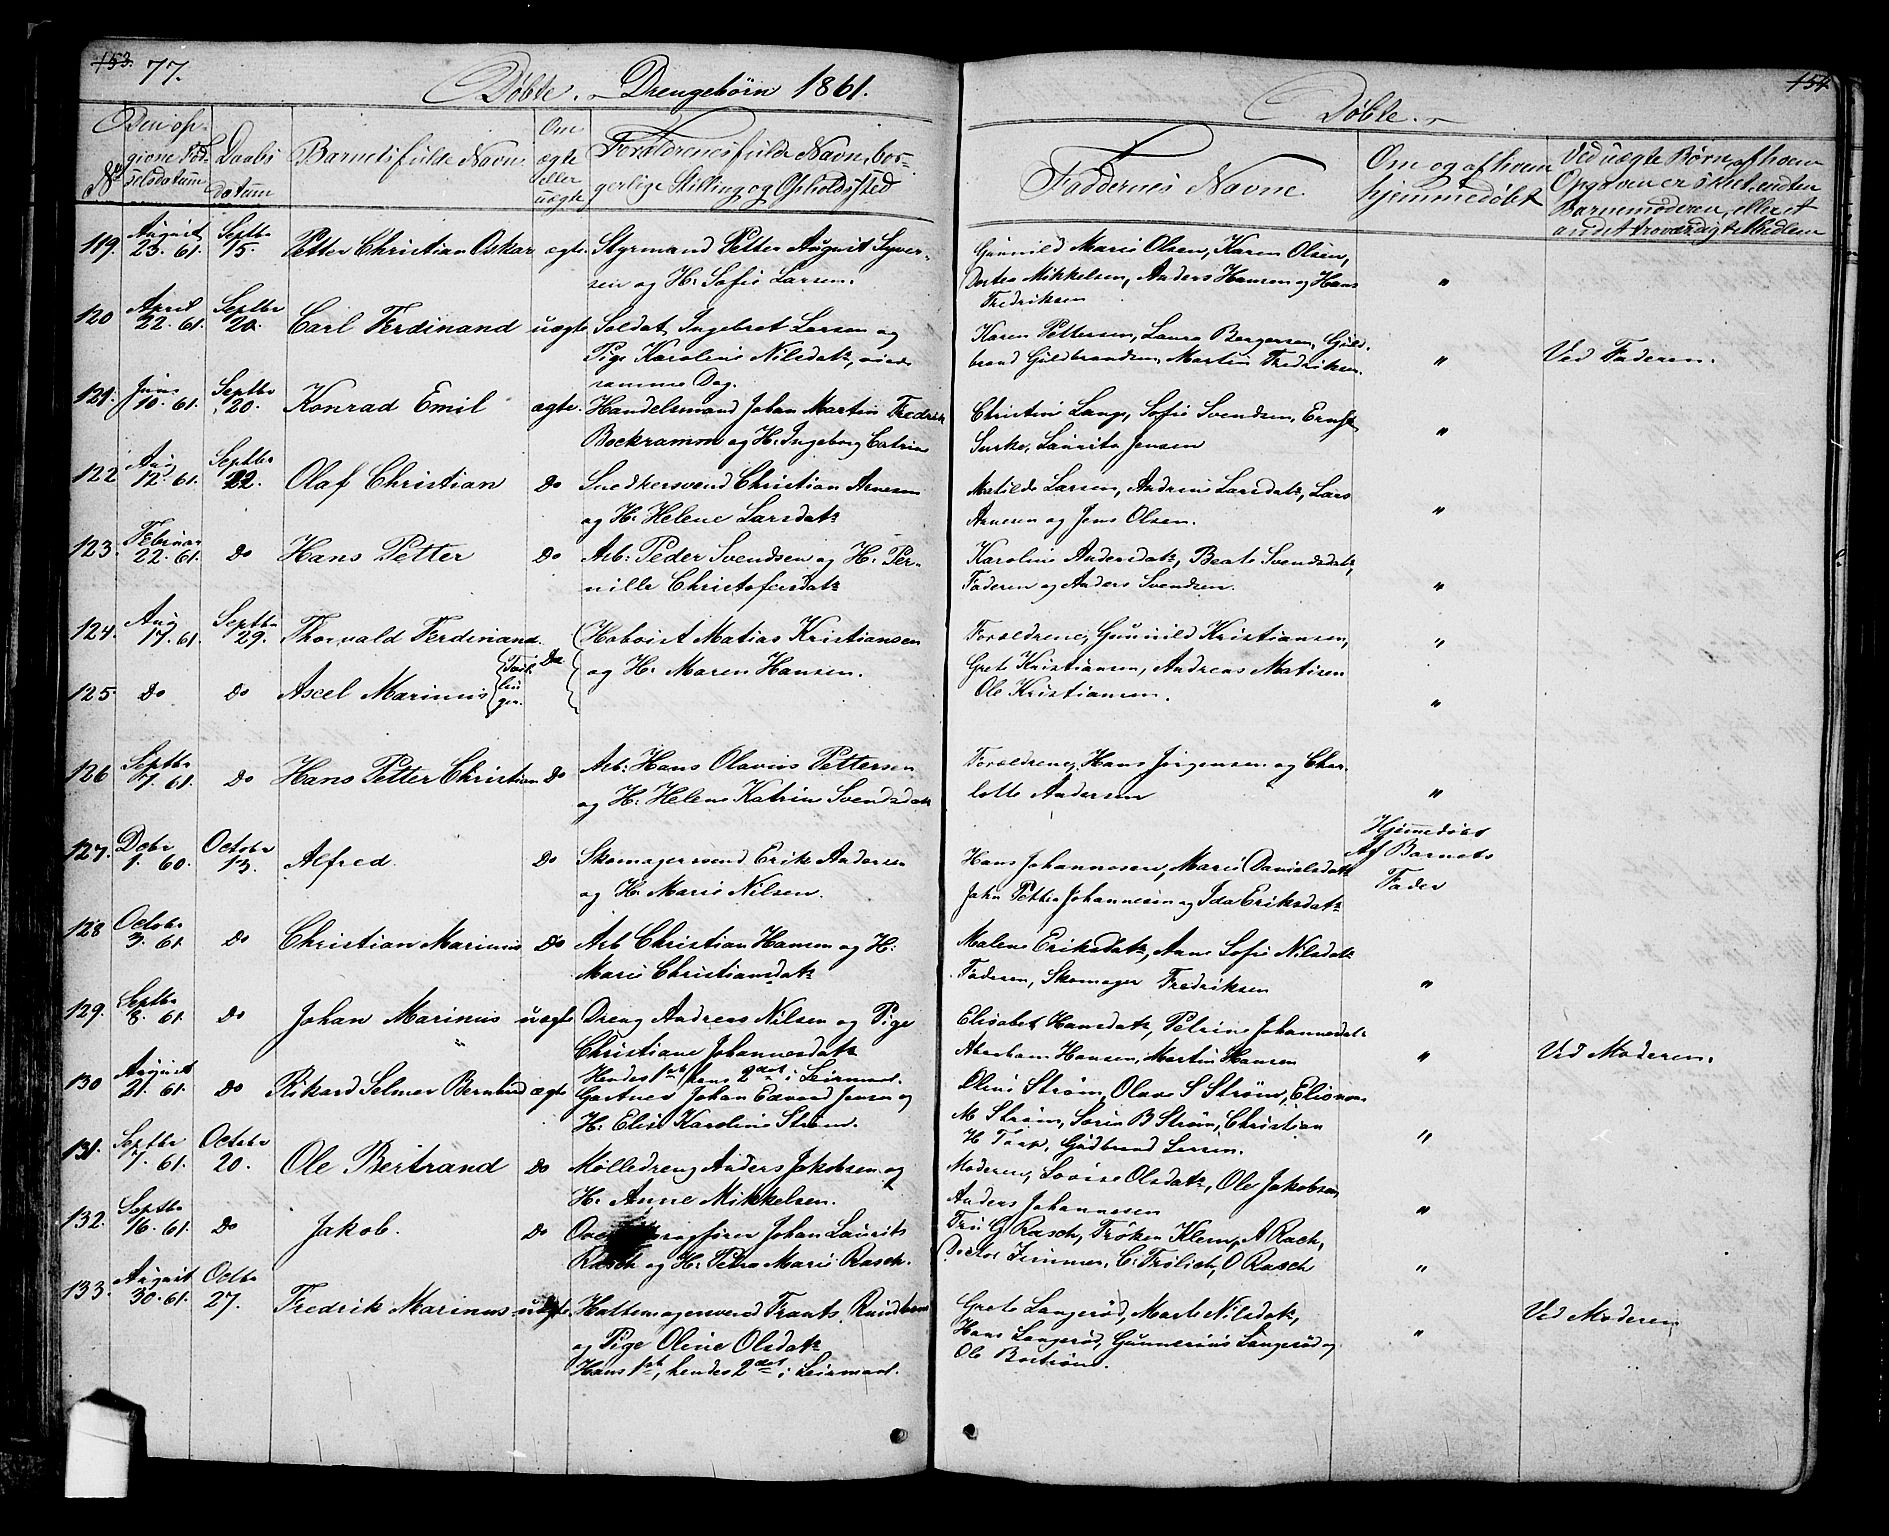 153. 77.
Døbte. Drengebørn 1861.
Den op-
givne Fød-
selsdatum
No
Daabs
datum
Barnets fulde Navn.
Om
ægte
eller
uægte
Forældrenes fulde Navn, bor-
gerlige Stilling og Opholdssted
119. August 23. 61. Septbr 15. Petter Christian Oskar ægte. Styrmand Petter August Syver-
sen og H. Sofie Larsen.
120 April 22. 61. Septbr 20. Carl Ferdinand uægte Soldat Ingebret Larsen og
Pige Karoline Nilsdatr, viede
samme Dag.
121. Juni 10. 61. Septbr 20. Konrad Emil ægte. Handelsmand Johan Martin Fredrik
Bockramm og H. Ingeborg Catrine
122 Aug 12. 61. Septbr 22. Olaf Christian Do Snedkersvend Christian Arnesen
og H. Helene Larsdatr
123. Februar 22. 61. Do Hans Petter Do Arb: Peder Svendsen og H. Per-
nille Christofersdatr
124. Aug 17. 61. Septbr 29. Thorvald Ferdinand Do Hoboist Matias Kristiansen
og H. Maren Hansen.
125. Do Do Axel Marinus Tvil-
lin
ger.
126 Septbr 7. 61. Do Hans Petter Christian Do Arb: Hans Olavius Pettersen
og H. Helene Katrine Svendsdatr
127. Decbr 1. 60. Octobr 13. Alfred. Do Skomagersvend Erik Andersen
og H. Marie Nilsen.
128 Octobr 3. 61. Do Christian Marinus Do Arb Christian Hansen og H.
Marie Christiansdatr
129. Septbr 8. 61. Do Johan Marinus uægte Dreng Andreas Nilsen og Pige
Christiane Johannesdatr
Hendes 1ste, hans 2det i Leiermaal.
130 August 21. 61. Do Rikard Selmer Bernhard ægte Gartner Johan Edvard Jensen og
H. Elise Karoline Strøm.
131. Septbr 7. 61. Octobr 20. Ole Bertrand Do Mølledreng Anders Jakobsen og
H. Anne Mikkelsen.
132. Septbr 16. 61. Do Jakob. Do Johan Laurits
Rasch og H. Petra Marie Rasch.
133. August 30. 61. Octbr 27. Fredrik Marinus uægte. Hattemagersvend Frants
og Pige Oline Olsdatr
Hans 1ste, hendes 2det i Leiermaal.
154
Døbte.
Faddernes Navne.
Om og af hvem
hjemmedøbt
Ved uægte Børn, af hvem
Opgaven er skeet, enten
Barnemoderen, eller et
andet troværdigt Medlem
Gunnild Marie Olsen, Karen Olsen,
Dortea Mikkelsen, Anders Hansen og Hans
Fredriksen "
Karen Pettersen, Laura Bergersen, Guld-
brand Guldbrandsen, Martin Fredriksen. " Ved Faderen.
Christine Lange, Sofie Svendsen, Ernst
Lauritz Jensen "
Matilde Larsen, Andrine Larsdatr, Lars
Arnesen og Jens Olsen. "
Karoline Andersdatr, Beate Svendsdatr,
Faderen og Anders Svendsen. "
Forældrene, Gunnild Kristiansen, "
Grete Kristiansen, Andreas Matisen
Ole Kristiansen. "
Forældrene, Hans Jørgensen og Char-
lotte Andersen "
Hjemmedøbt
Af Barnets
Fader
Hans Johannesen, Marie Danielsdatr
John Petter Johannesen og Ida Eriksdatr
Malene Eriksdatr, Anne Sofie Nilsdatr
Faderen, Skomager Fredriksen "
Elisabet Hansdatr, Petrine Johannesdatr
Abraham Hansen, Martin Hansen " Ved Moderen.
Oline Strøm, Olave S Strøm, Elionora
M Strøm, Søren B Strøm, Christian
H Torp, Gudbrand Larsen. "
Moderen, Lovise Olsdatr, Ole Jakobsen
Anders Johannesen "
Fru G Rasch, Frøken Klem, A Rach,
Doctor Zimmer, C. Frølich, O Rasch "
Grete Langerød, Marte Nilsdatr,
Hans Langerød, Gunnerius Langerød og
Ole Boström. " Ved Moderen